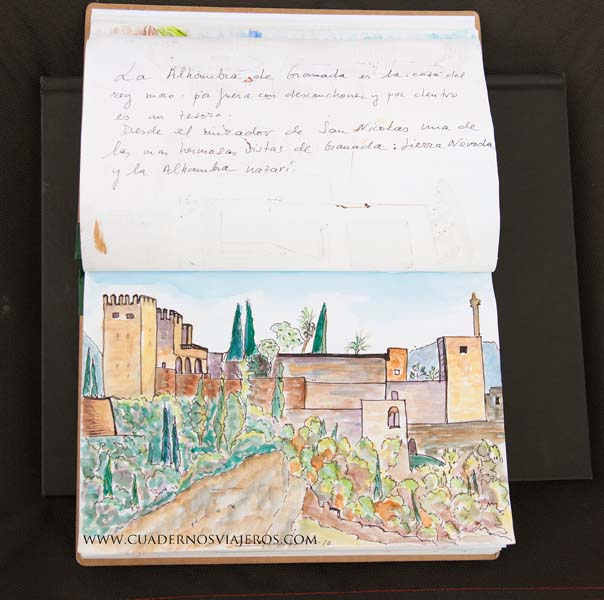 La Alhambra de Granada es la casa del
rey moro. por fuera con desconchones y por dentro
es un tesoro.
Desde el mirador de San Nicolas una de
las mas hermosas vistas de Granada: Sierra Nevada
y la Alhambra nazarí
WWW.CUADERNOSVIAJEROS.COM